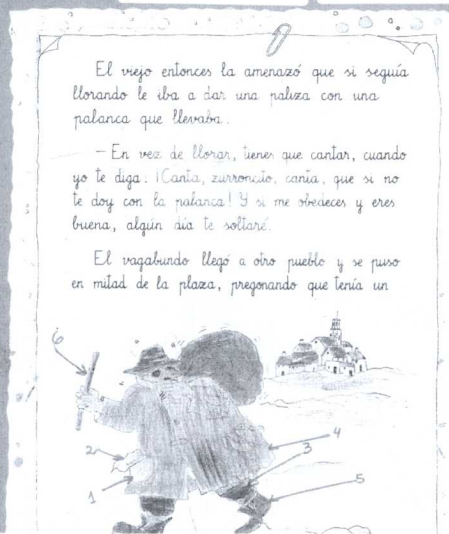 El viejo entonces la amenazó que si seguía
llorando le iba a dar una paliza con una
palanca que llevaba.
- En vez de llorar, tienes que cantar, cuando
yo te diga: ¡Canta, zurroncito, canta, que si no
te doy con la palanca! Y si me obedeces y eres
buena, algún día te soltaré.
El vagabundo llegó a otro pueblo y se puso
en mitad de la plaza, pregonando que tenía un
6
2
1
4
3
5